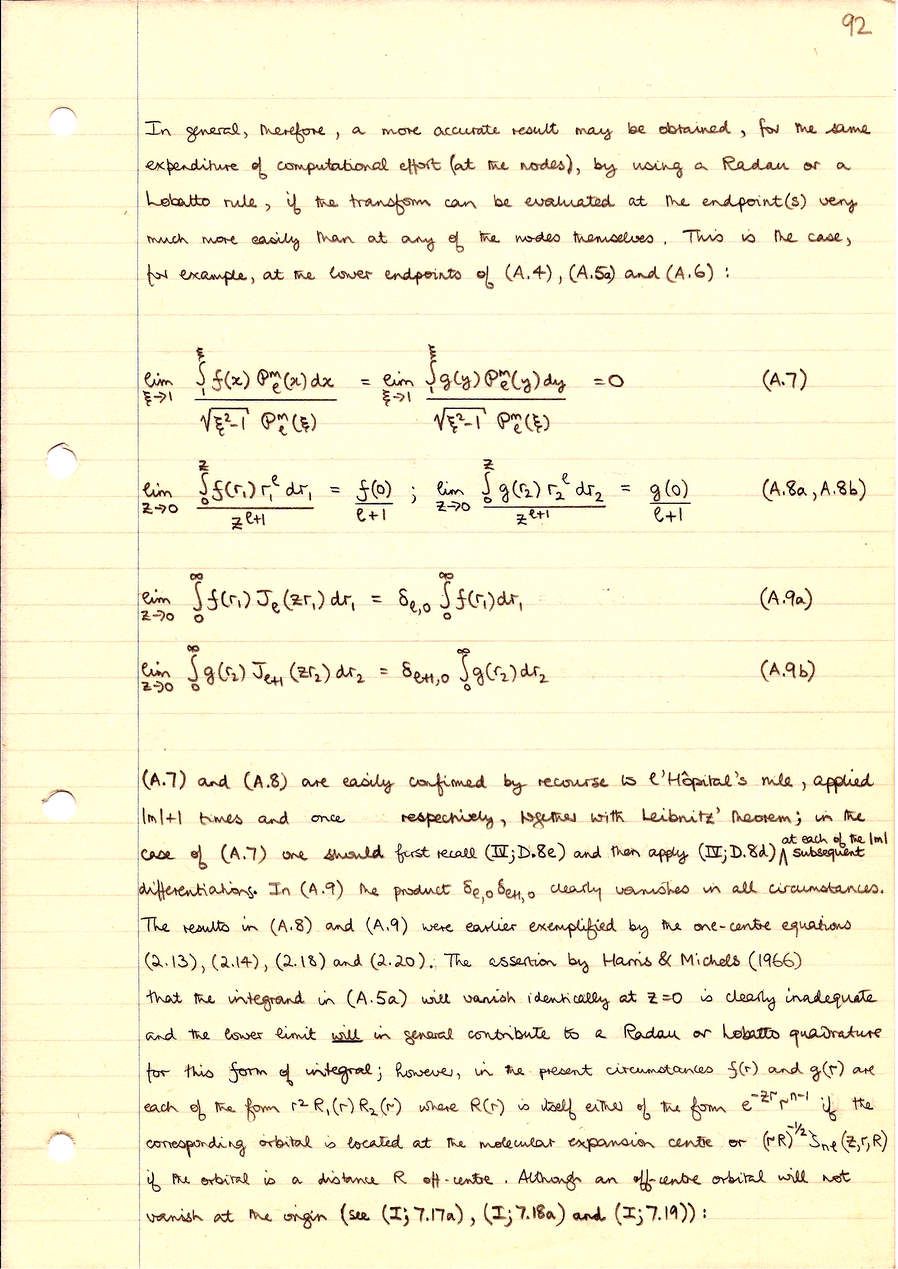 92
In general, therefore, a more accurate result may be obtained, for the same
expenditure of computational effort (at the nodes), by using a Radau or a
Lobatto rule, if the transform can be evaluated at the endpoint(s) very
much more easily than at any of the nodes themselves. This is the case,
for example, at the lower endpoints of (A.4), (A.5a) and (A.6) :
lim_{ξ→1} ∫_1^ξ f(x) P_ℓ^m(x) dx / √(ξ²-1) P_ℓ^m(ξ) = lim_{ξ→1} ∫_1^ξ g(y) P_ℓ^m(y) dy / √(ξ²-1) P_ℓ^m(ξ) = 0 (A.7)
lim_{z→0} ∫_0^z f(r₁) r₁^ℓ dr₁ / z^{ℓ+1} = f(0) / ℓ+1 ; lim_{z→0} ∫_0^z g(r₂) r₂^ℓ dr₂ / z^{ℓ+1} = g(0) / ℓ+1 (A.8a, A.8b)
lim_{z→0} ∫_0^∞ f(r₁) J_ℓ(zr₁) dr₁ = δ_{ℓ,0} ∫_0^∞ f(r₁) dr₁ (A.9a)
lim_{z→0} ∫_0^∞ g(r₂) J_{ℓ+1}(zr₂) dr₂ = δ_{ℓ+1,0} ∫_0^∞ g(r₂) dr₂ (A.9b)
(A.7) and (A.8) are easily confirmed by recourse to l'Hôpital's rule, applied
|m|+1 times and once respectively, together with Leibnitz' theorem; in the
case of (A.7) one should first recall (IV; D.8e) and then apply (IV; D.8d) ∧ at each of the |m| subsequent
differentiations. In (A.9) the product δ_{ℓ,0} δ_{ℓ+1,0} clearly vanishes in all circumstances.
The results in (A.8) and (A.9) were earlier exemplified by the one-centre equations
(2.13), (2.14), (2.18) and (2.20). The assertion by Harris & Michels (1966)
that the integrand in (A.5a) will vanish identically at z=0 is clearly inadequate
and the lower limit will in general contribute to a Radau or Lobatto quadrature
for this form of integral; however, in the present circumstances f(r) and g(r) are
each of the form r² R₁(r) R₂(r) where R(r) is itself either of the form e^{-zr} r^{n-1} if the
corresponding orbital is located at the molecular expansion centre or (rR)^{-1/2} S_{nℓ}(z,r,R)
if the orbital is a distance R off-centre. Although an off-centre orbital will not
vanish at the origin (see (I; 7.17a), (I; 7.18a) and (I; 7.19)) :